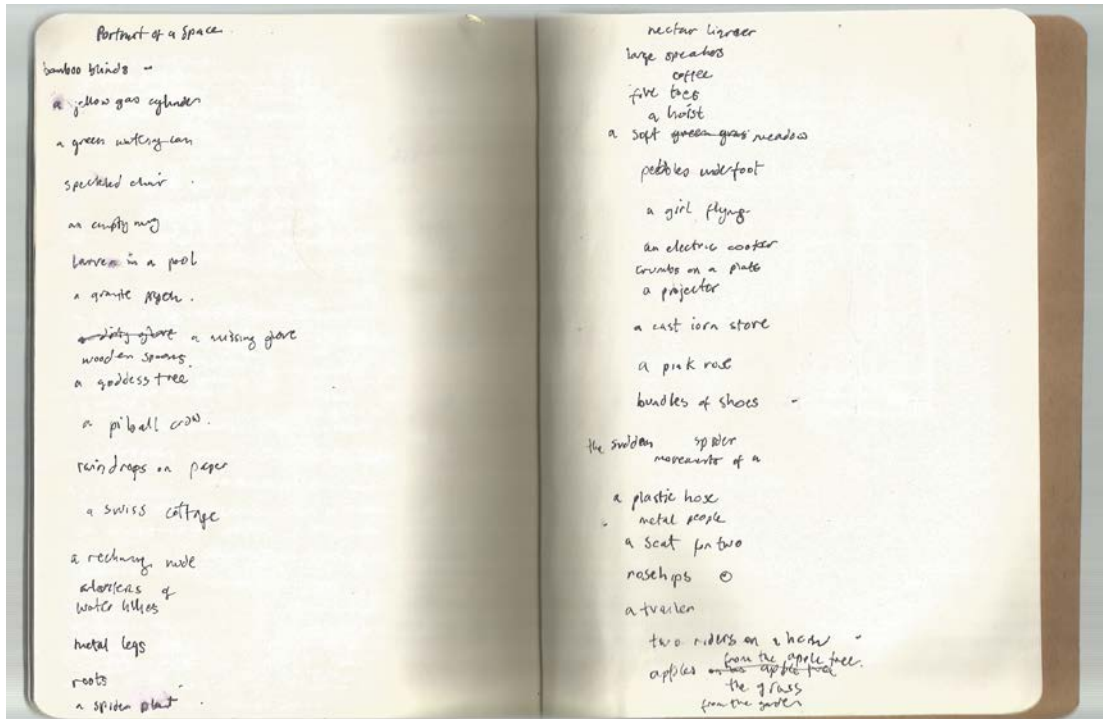 Portrait of a Space
bamboo blinds -
a yellow gas cylinder
a green watering can
speckled chair
an empty mug
larvea in a pool
a granite
a missing glove
wooden spoons
a goddess tree
a piball crow.
raindrops on paper
a swiss cottage
a rechung nude
clusters of
water lillies
metal legs
roots
a spider plant
nectar
large speakers
coffee
five toes
a hoist
a soft green grass meadow
pebbles underfoot
a girl flying
an electric cooker
crumbs on a plate
a projector
a cast iorn stove
a pink rose
bundles of shoes -
the sudden spider
movements of a
a plastic hose
metal people
a seat for two
rosehips
a trailer
two riders on a horse -
from the apple tree.
apples on an apple tree
the grass
from the garden